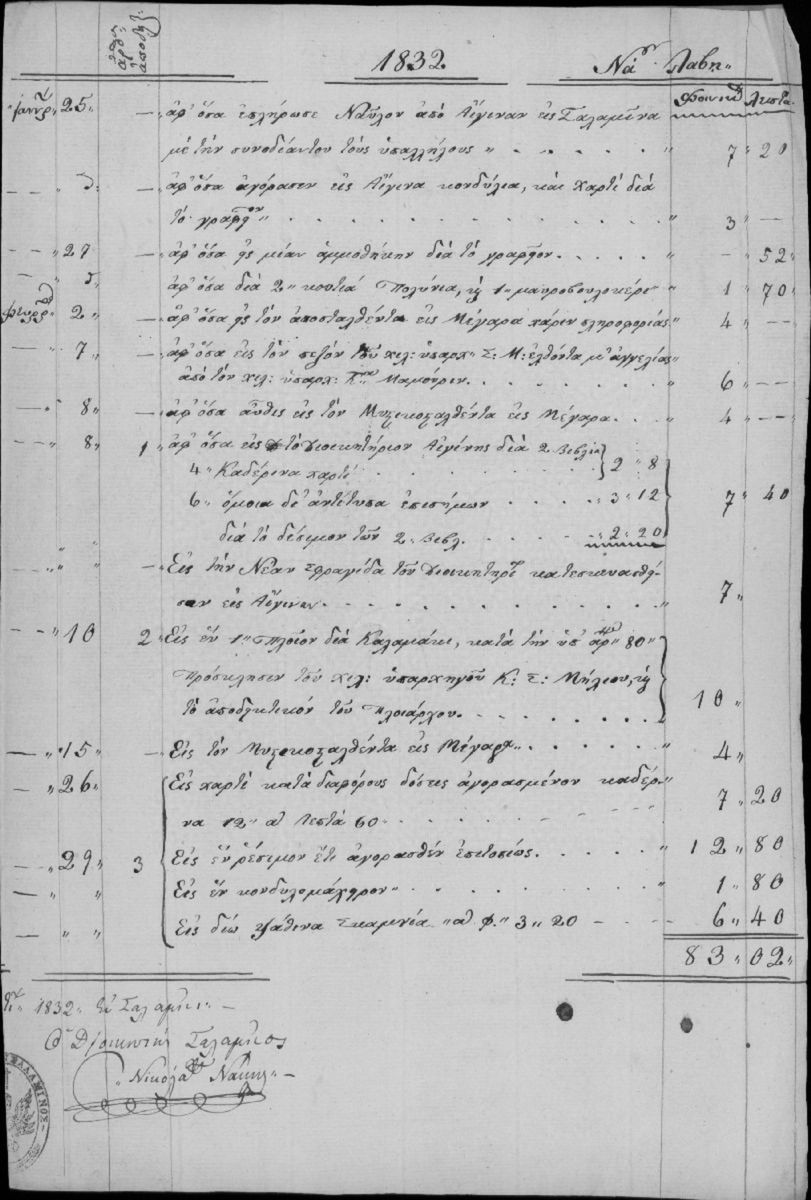 ἀρθ: ἀποδείξ:
1832. Νὰ Λάβῃ "
Φοίνικ. Λεπτὰ
Ἰαννρ " 25 " — ἀφ' ὅσα ἐπλήρωσε Ναῦλον ἀπὸ Αἴγιναν εἰς Σαλαμῖνα
μὲ τὴν συνοδίαν του τοὺς ὑπαλλήλους " . . . . . " 7 " 20
— — " — ἀφ' ὅσα ἀγόρασεν εἰς Αἴγινα κονδύλια, καὶ χαρτὶ διὰ
τὸ γραφεῖον " . . . . . " 3 " —
— — " 27 — ἀφ' ὅσα εἰς μίαν ἀμμοθήκην διὰ τὸ γραφεῖον . . . . " — " 52 "
— " — ἀφ' ὅσα διὰ 2 " κουτιὰ , καὶ 1 " μαυροβουλοκέρι " " 1 " 70
Φευρρ " 2 " — ἀφ' ὅσα εἰς τὸν ἀποσταλθέντα εἰς Μέγαρα χάριν πληροφορίας " 4 " — —
— " 7 " — ἀφ' ὅσα εἰς τὸν πεζὸν τοῦ χιλ: ὑπαρχ " Σ: Μ: ἐλθόντα μ' ἀγγελίας "
ἀπὸ τὸν χιλ: ὑπαρχ: Μαμούρην . . . . . " 6 " — —
— " 8 " — ἀφ' ὅσα αὖθις εἰς τὸν εἰς Μέγαρα . . . " 4 " — —
— — " 8 " 1 " ἀφ' ὅσα εἰς τὸ Διοικητήριον Αἰγίνης διὰ 2 Βιβλία
4 " Καδέρινα χαρτὶ . . . . . 2 " 8
6 " ὅμοια δι' ἀντίτυπα ἐπισήμων . . . . " 3 " 12 7 " 40
διὰ τὸ δέσιμον τῶν 2 " Βιβλ. . . . . " 2 " 20
— — " " — Εἰς τὴν Νέαν Σφραγίδα τοῦ Διοικητηρ κατασκευασθεῖ-
σαν εἰς Αἴγιναν . . . . . " 7 "
— — " 10 2 " Εἰς ἓν 1 " πλοῖον διὰ Καλαμάκι, κατὰ τὴν ὑπ' ἀρ " 80 "
πρόσκλησιν τοῦ χιλ: ὑπαρχηγοῦ Κ: Σ: Μήλιου, καὶ
τὸ ἀποδεικτικὸν τοῦ Πλοιάρχου . . . . . 10 "
— " 15 " — Εἰς τὸν εἰς Μέγαρα . . . . . " 4 "
— " 26 " Εἰς χαρτὶ κατὰ διαφόρους δόσεις ἀγορασμένον καδέρ- "
να 12 " ἀ Λεπτὰ 60 . . . . . 7 " 20
— " 29 " 3 Εἰς ἓν ἔτι ἀγορασθὲν ἐπιτοπίως . . . . . " 12 " 80
— " " Εἰς ἓν κονδυλομάχαιρον " . . . . . " 1 " 80
— " " Εἰς δύω ψάθινα Σκαμνία " ἀ φ. " 3 " 20 — — — 6 " 40
83 " 02 "
1832 " Ἐν Σαλαμῖνι " —
Ὁ Διοικητὴς Σαλαμῖνος
" Νικόλαος Νάκης " —
ΣΑΛΑΜΙΝΟΣ